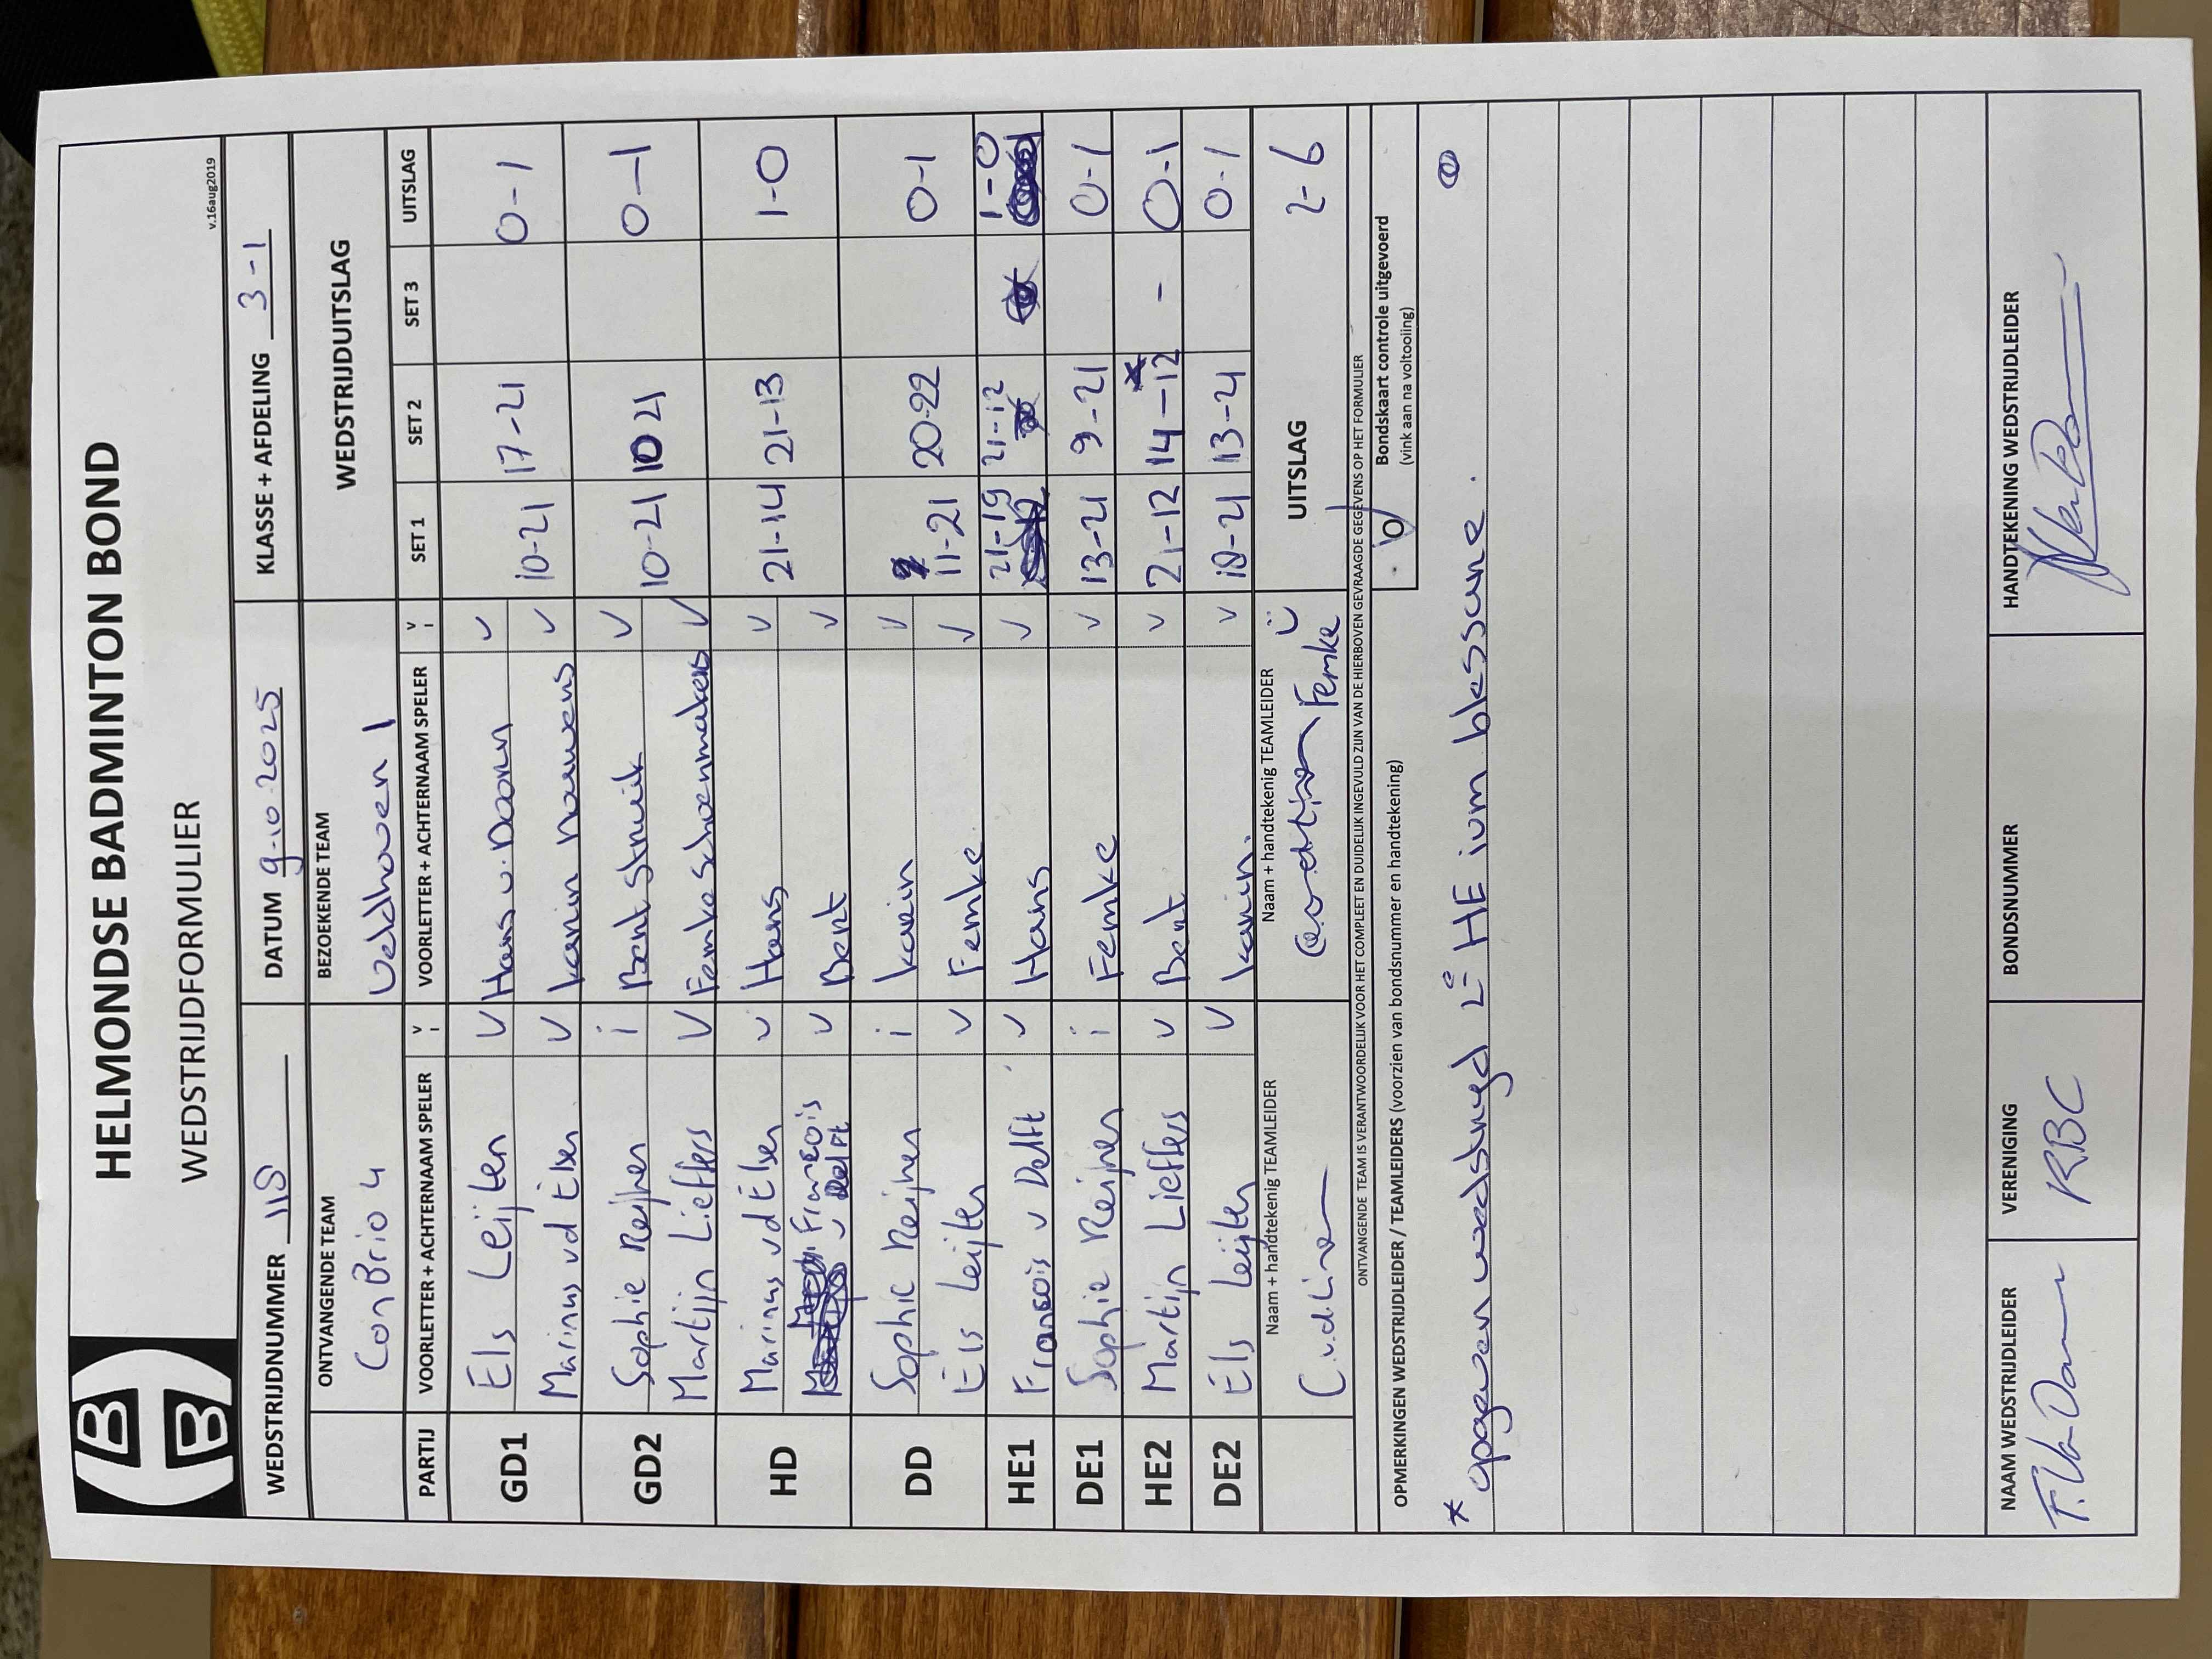 HELMONDSE BADMINTON BOND
WEDSTRIJDFORMULIER
v.16aug2019
WEDSTRIJDNUMMER 118 DATUM 9-10-2025 KLASSE + AFDELING 3-1
ONTVANGENDE TEAM BEZOEKENDE TEAM WEDSTRIJDUITSLAG
Con Brio 4 Veldhoven 1
PARTIJ VOORLETTER + ACHTERNAAM SPELER v i VOORLETTER + ACHTERNAAM SPELER v i SET 1 SET 2 SET 3 UITSLAG
GD1 Els Leijten v Hans v. Doorn v 10-21 17-21 0-1
Marinus vd Elsen v Karin Nouwens v
GD2 Sophie Reijnen i Bert Struik v 10-21 10 21 0-1
Martijn Lieffers v Femke Schoenmakers v
HD Marinus vd Elsen v Hans v 21-14 21-13 1-0
Francois v Delft v Bert v
DD Sophie Reijnen i Karin v 11-21 20-22 0-1
Els Leijten v Femke v
HE1 Francois v Delft v Hans v 21-19 21-12 1-0
DE1 Sophie Reijnen i Femke v 13-21 9-21 0-1
HE2 Martijn Lieffers v Bert v 21-12 14-12 * - 0-1
DE2 Els Leijten v Karin. v 18-21 13-21 0-1
Naam + handtekenig TEAMLEIDER Naam + handtekenig TEAMLEIDER UITSLAG 2-6
Femke
ONTVANGENDE TEAM IS VERANTWOORDELIJK VOOR HET COMPLEET EN DUIDELIJK INGEVULD ZIJN VAN DE HIERBOVEN GEVRAAGDE GEGEVENS OP HET FORMULIER
OPMERKINGEN WEDSTRIJDLEIDER / TEAMLEIDERS (voorzien van bondsnummer en handtekening)
O Bondskaart controle uitgevoerd
(vink aan na voltooiing)
* opgegeven wedstrijd 2e HE ivm blessure.
NAAM WEDSTRIJDLEIDER VERENIGING BONDSNUMMER HANDTEKENING WEDSTRIJDLEIDER
KBC